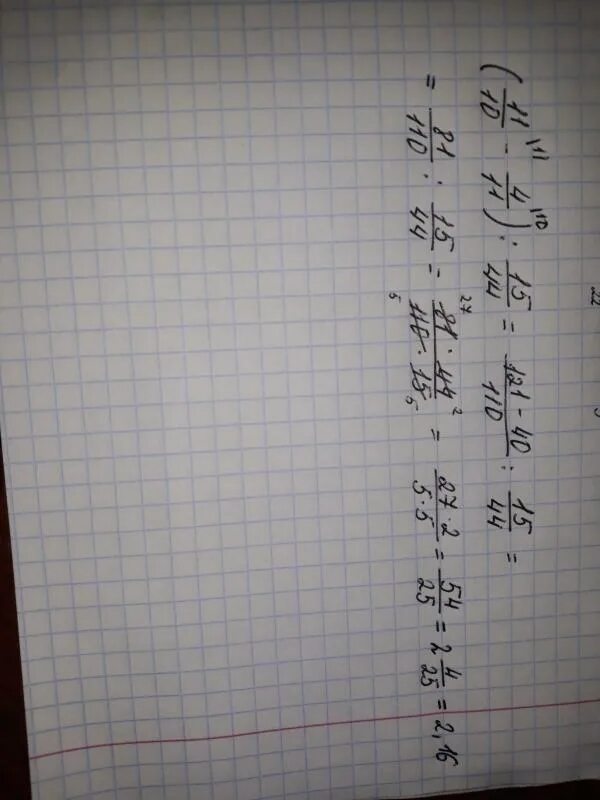 (11/10 \11 - 4/11 \10) : 15/44 = 121-40/110 : 15/44 =
= 81/110 : 15/44 = 81 27 · 44 2/110 5 · 15 5 = 27·2/5·5 = 54/25 = 2 4/25 = 2,16
22